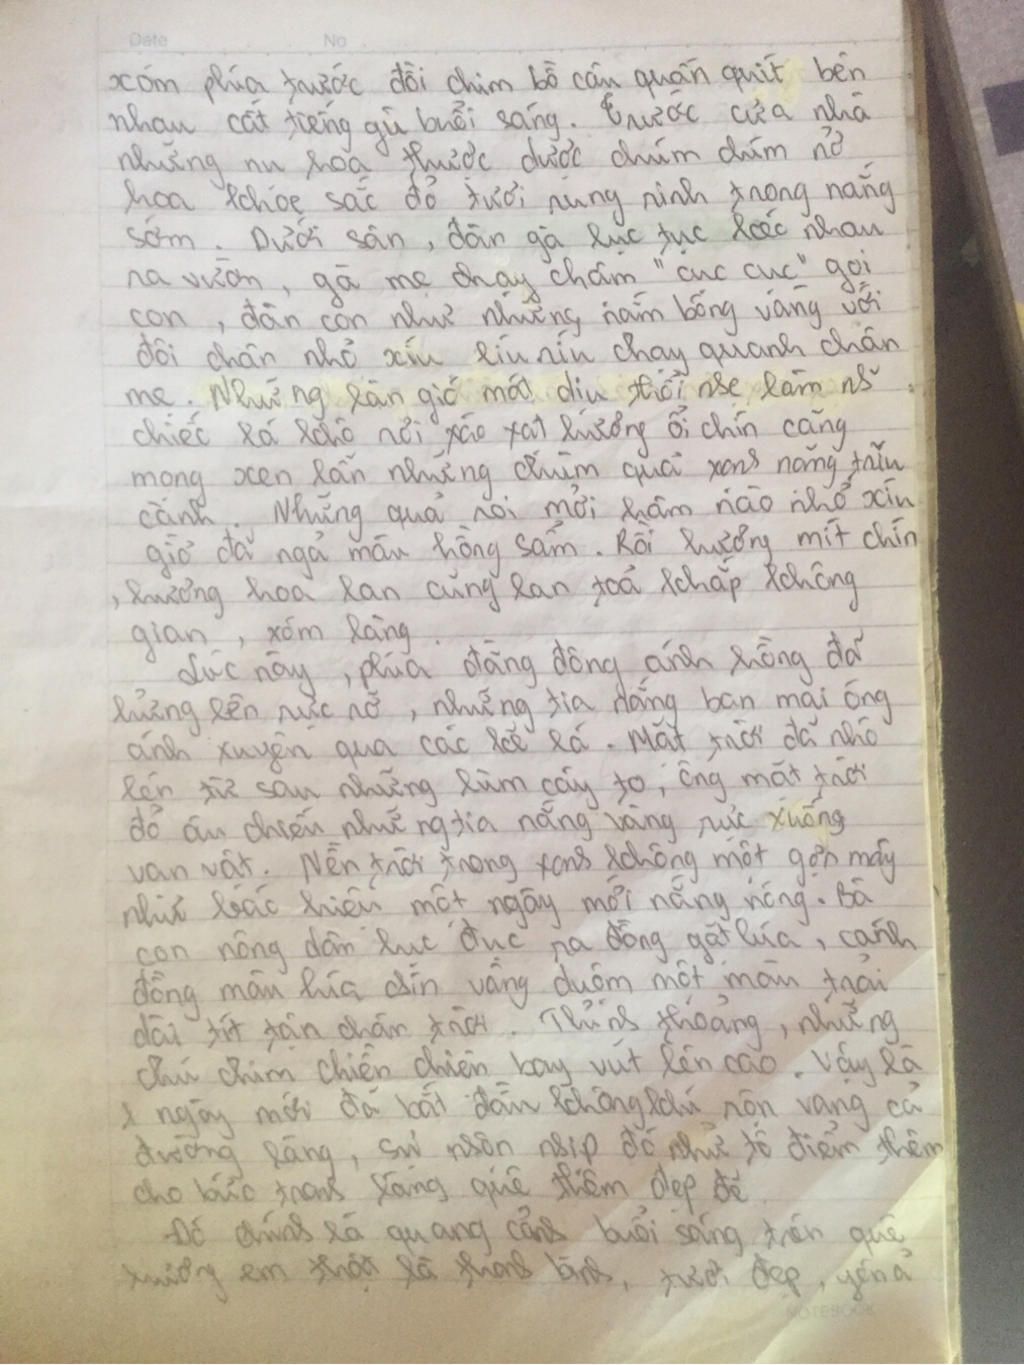 Date No
xóm phía trước đồi chim bồ câu quấn quít bên
nhau cất tiếng gù buổi sáng. Trước cửa nhà
những nụ hoa thược dược chúm chím nở
hoa khoe sắc đỏ tươi rung rinh trong nắng
sớm. Dưới sân, đàn gà lục tục kéo nhau
ra vườn, gà mẹ chạy chậm "cục cục" gọi
con, đàn con như những nắm bông vàng với
đôi chân nhỏ xíu líu ríu chạy quanh chân
mẹ. Những làn gió mát dịu thổi nhẹ làm n~
chiếc lá khô rơi xào xạt hương ổi chín căng
mọng xen lẫn những chùm quả xanh nặng trĩu
cành. Những quả roi mới hôm nào nhỏ xíu
giờ đã ngả màu hồng sẫm. Rồi hương mít chín
, hương hoa lan cũng lan toả khắp không
gian, xóm làng.
Lúc này, phía đằng đông ánh hồng đã
hửng lên rực rỡ, những tia nắng ban mai óng
ánh xuyên qua các kẽ lá. Mặt trời đã nhô
lên từ sau những lùm cây to, ông mặt trời
đỏ au chiếu những tia nắng vàng rực xuống
vạn vật. Nền trời trong xanh không một gợn mây
như báo hiệu một ngày mới nắng nóng. Bà
con nông dân lục đục ra đồng gặt lúa, cánh
đồng màu lúa chín vàng duộm một màu trải
dài tít tận chân trời. Thỉnh thoảng, những
chú chim chiền chiện bay vút lên cao. Vậy là
1 ngày mới đã bắt đầu không khí rộn vang cả
đường làng, sự nhộn nhịp đó như tô điểm thêm
cho bức tranh làng quê thêm đẹp đẽ
Đó chính là quang cảnh buổi sáng trên quê
hương em thật là thanh bình, tươi đẹp, yên ả
NOTEBOOK